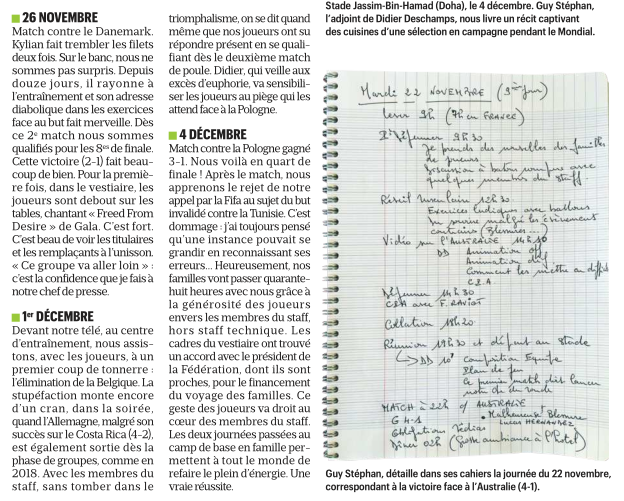 26 NOVEMBRE
Match contre le Danemark.
Kylian fait trembler les filets
deux fois. Sur le banc, nous ne
sommes pas surpris. Depuis
douze jours, il rayonne à
l'entraînement et son adresse
diabolique dans les exercices
face au but fait merveille. Dès
ce 2e match nous sommes
qualifiés pour les 8es de finale.
Cette victoire (2-1) fait beau-
coup de bien. Pour la premiè-
re fois, dans le vestiaire, les
joueurs sont debout sur les
tables, chantant « Freed From
Desire » de Gala. C'est fort.
C'est beau de voir les titulaires
et les remplaçants à l'unisson.
« Ce groupe va aller loin » :
c'est la confidence que je fais à
notre chef de presse.
1er DÉCEMBRE
Devant notre télé, au centre
d'entraînement, nous assis-
tons, avec les joueurs, à un
premier coup de tonnerre :
l'élimination de la Belgique. La
stupéfaction monte encore
d'un cran, dans la soirée,
quand l'Allemagne, malgré son
succès sur le Costa Rica (4-2),
est également sortie dès la
phase de groupes, comme en
2018. Avec les membres du
staff, sans tomber dans le
triomphalisme, on se dit quand
même que nos joueurs ont su
répondre présent en se quali-
fiant dès le deuxième match
de poule. Didier, qui veille aux
excès d'euphorie, va sensibili-
ser les joueurs au piège qui les
attend face à la Pologne.
4 DÉCEMBRE
Match contre la Pologne gagné
3-1. Nous voilà en quart de
finale ! Après le match, nous
apprenons le rejet de notre
appel par la Fifa au sujet du but
invalidé contre la Tunisie. C'est
dommage : j'ai toujours pensé
qu'une instance pouvait se
grandir en reconnaissant ses
erreurs... Heureusement, nos
familles vont passer quarante-
huit heures avec nous grâce à
la générosité des joueurs
envers les membres du staff,
hors staff technique. Les
cadres du vestiaire ont trouvé
un accord avec le président de
la Fédération, dont ils sont
proches, pour le financement
du voyage des familles. Ce
geste des joueurs va droit au
cœur des membres du staff.
Les deux journées passées au
camp de base en famille per-
mettent à tout le monde de
refaire le plein d'énergie. Une
vraie réussite.
Stade Jassim-Bin-Hamad (Doha), le 4 décembre. Guy Stéphan,
l'adjoint de Didier Deschamps, nous livre un récit captivant
des cuisines d'une sélection en campagne pendant le Mondial.
Mardi 22 NOVEMBRE jour)
lever 9h (7h en FRANCE)
Déjeuner 9h30
Je prends des nouvelles des familles
de joueurs
Discussion à bâtons rompus avec
quelques membres du staff
Réveil musculaire 12h30
Exercices ludiques avec ballons
malgré les évènements
contraires (Blessures...)
Vidéo sur l'AUSTRALIE 14h10
DD Animation off
Animation def
Comment les mettre en diff
CPA
Déjeuner 14h30
CPA avec F. RAVIOT
Collation 18h20
Réunion 19h30 et départ au stade
DD 10' composition Equipe
Plan de jeu
ce premier match doit lancer
MATCH à 22h / AUSTRALIE
G 4-1 • Malheureuse Blessure
LUCAS HERNANDEZ
Obligations Médias
Diner 02h (Belle ambiance à l'hotel)
Guy Stéphan, détaille dans ses cahiers la journée du 22 novembre,
correspondant à la victoire face à l'Australie (4-1).